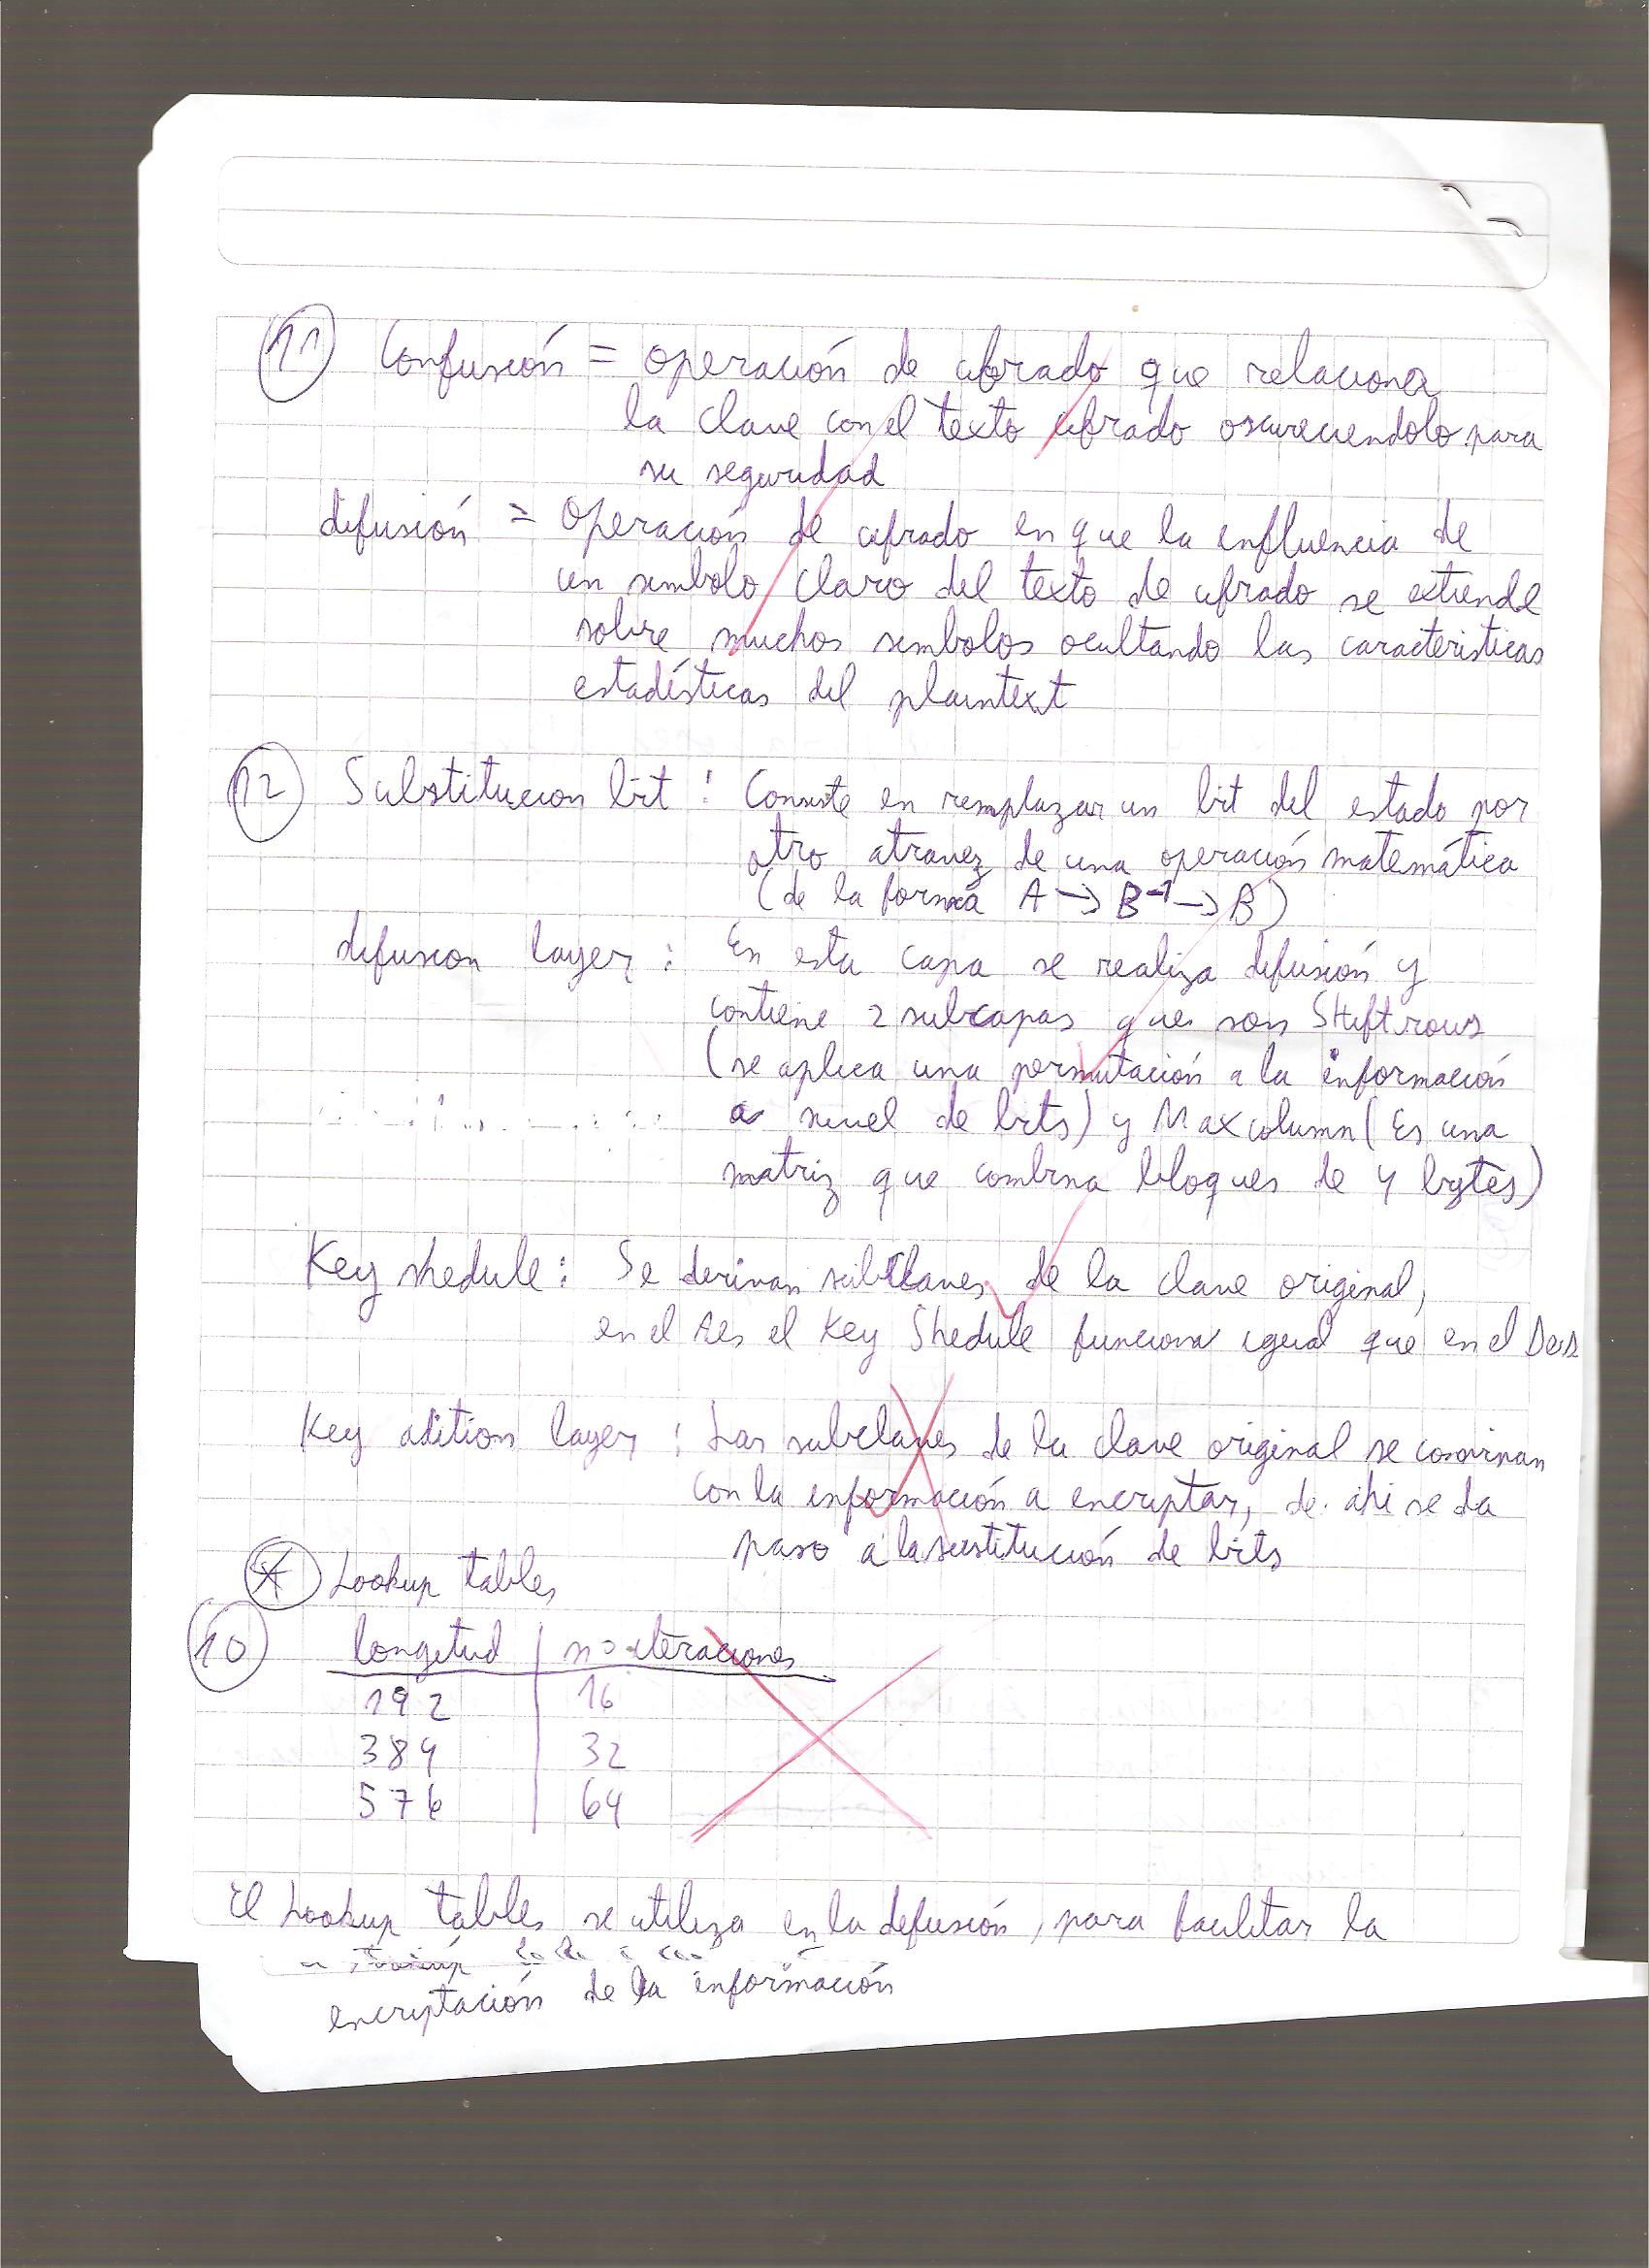 11 Confusión = Operación de cifrado que relaciona
la clave con el texto cifrado oscureciendolo para
su seguridad
difusión = Operación de cifrado en que la influencia de
un simbolo claro del texto de cifrado se extiende
sobre muchos simbolos ocultando las caracteristicas
estadísticas del plaintext
12 Substitucion bit : Consiste en remplazar un bit del estado por
otro atravez de una operación matemática
(de la forma A → B⁻¹ → B)
difusion layer : En esta capa se realiza difusión y
contiene 2 subcapas que son Shiftrows
(se aplica una permutación a la información
a nivel de bits) y Maxcolumn (Es una
matriz que combina bloques de 4 bytes)
Key shedule : Se derivan subclaves de la clave original,
en el Aes el Key Shedule funciona igual que en el Des
Key adition layer : Las subclaves de la clave original se convinan
con la información a encriptar, de ahi se da
paso a la sustitución de bits
* Lookup tables
10 longitud n= iteraciones
192 16
384 32
576 64
El Lookup tables se utiliza en la difusión, para facilitar la
encriptación de la información